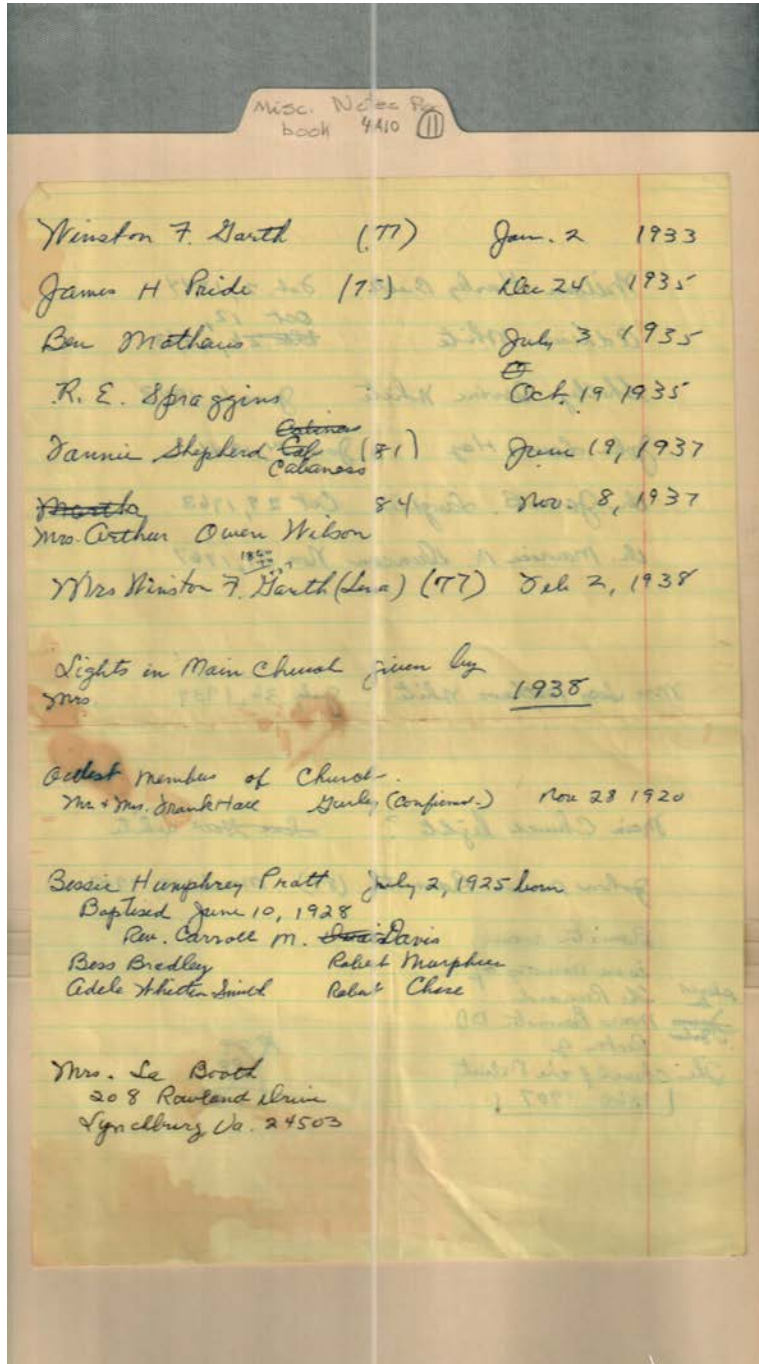 Misc. Notes
book 4410 (11)
Winston F. Garth (77) Jan. 2 1933
James H Pride (75) Dec 24 1935
Ben Mathews July 3 1935
R. E. Spraggins Oct. 19 1935
Fannie Shepherd Cabaness (81) June 19, 1937
Martha 84 Nov. 8, 1937
Mrs. Arthur Owen Wilson
Mrs Winston F. Garth (Lena) (77) Feb 2, 1938
Lights in Main Church given by
Mrs 1938
Oldest members of Church.
Mr. & Mrs. Frank Hall Gurley (Confirmed) Nov 28 1920
Bessie Humphrey Pratt July 2, 1925 born
Baptised June 10, 1928
Rev. Carroll M. Davis
Bess Bradley Robert Murphree
Adele Whitten Smith Robert Chase
Mrs. Booth
208 Rowland Drive
Lynchburg Va. 24503